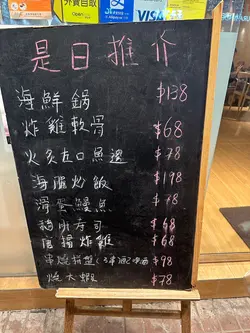 外賣自取
VISA
是日推介
海鮮鍋 $138
炸雞軟骨 $68
火炙左口魚邊 $78
海膽炒飯 $198
滑蛋鰻魚 $78
稻荷壽司 $68
唐揚炸雞 $68
串燒拼盤 $98
燒大蝦 $78